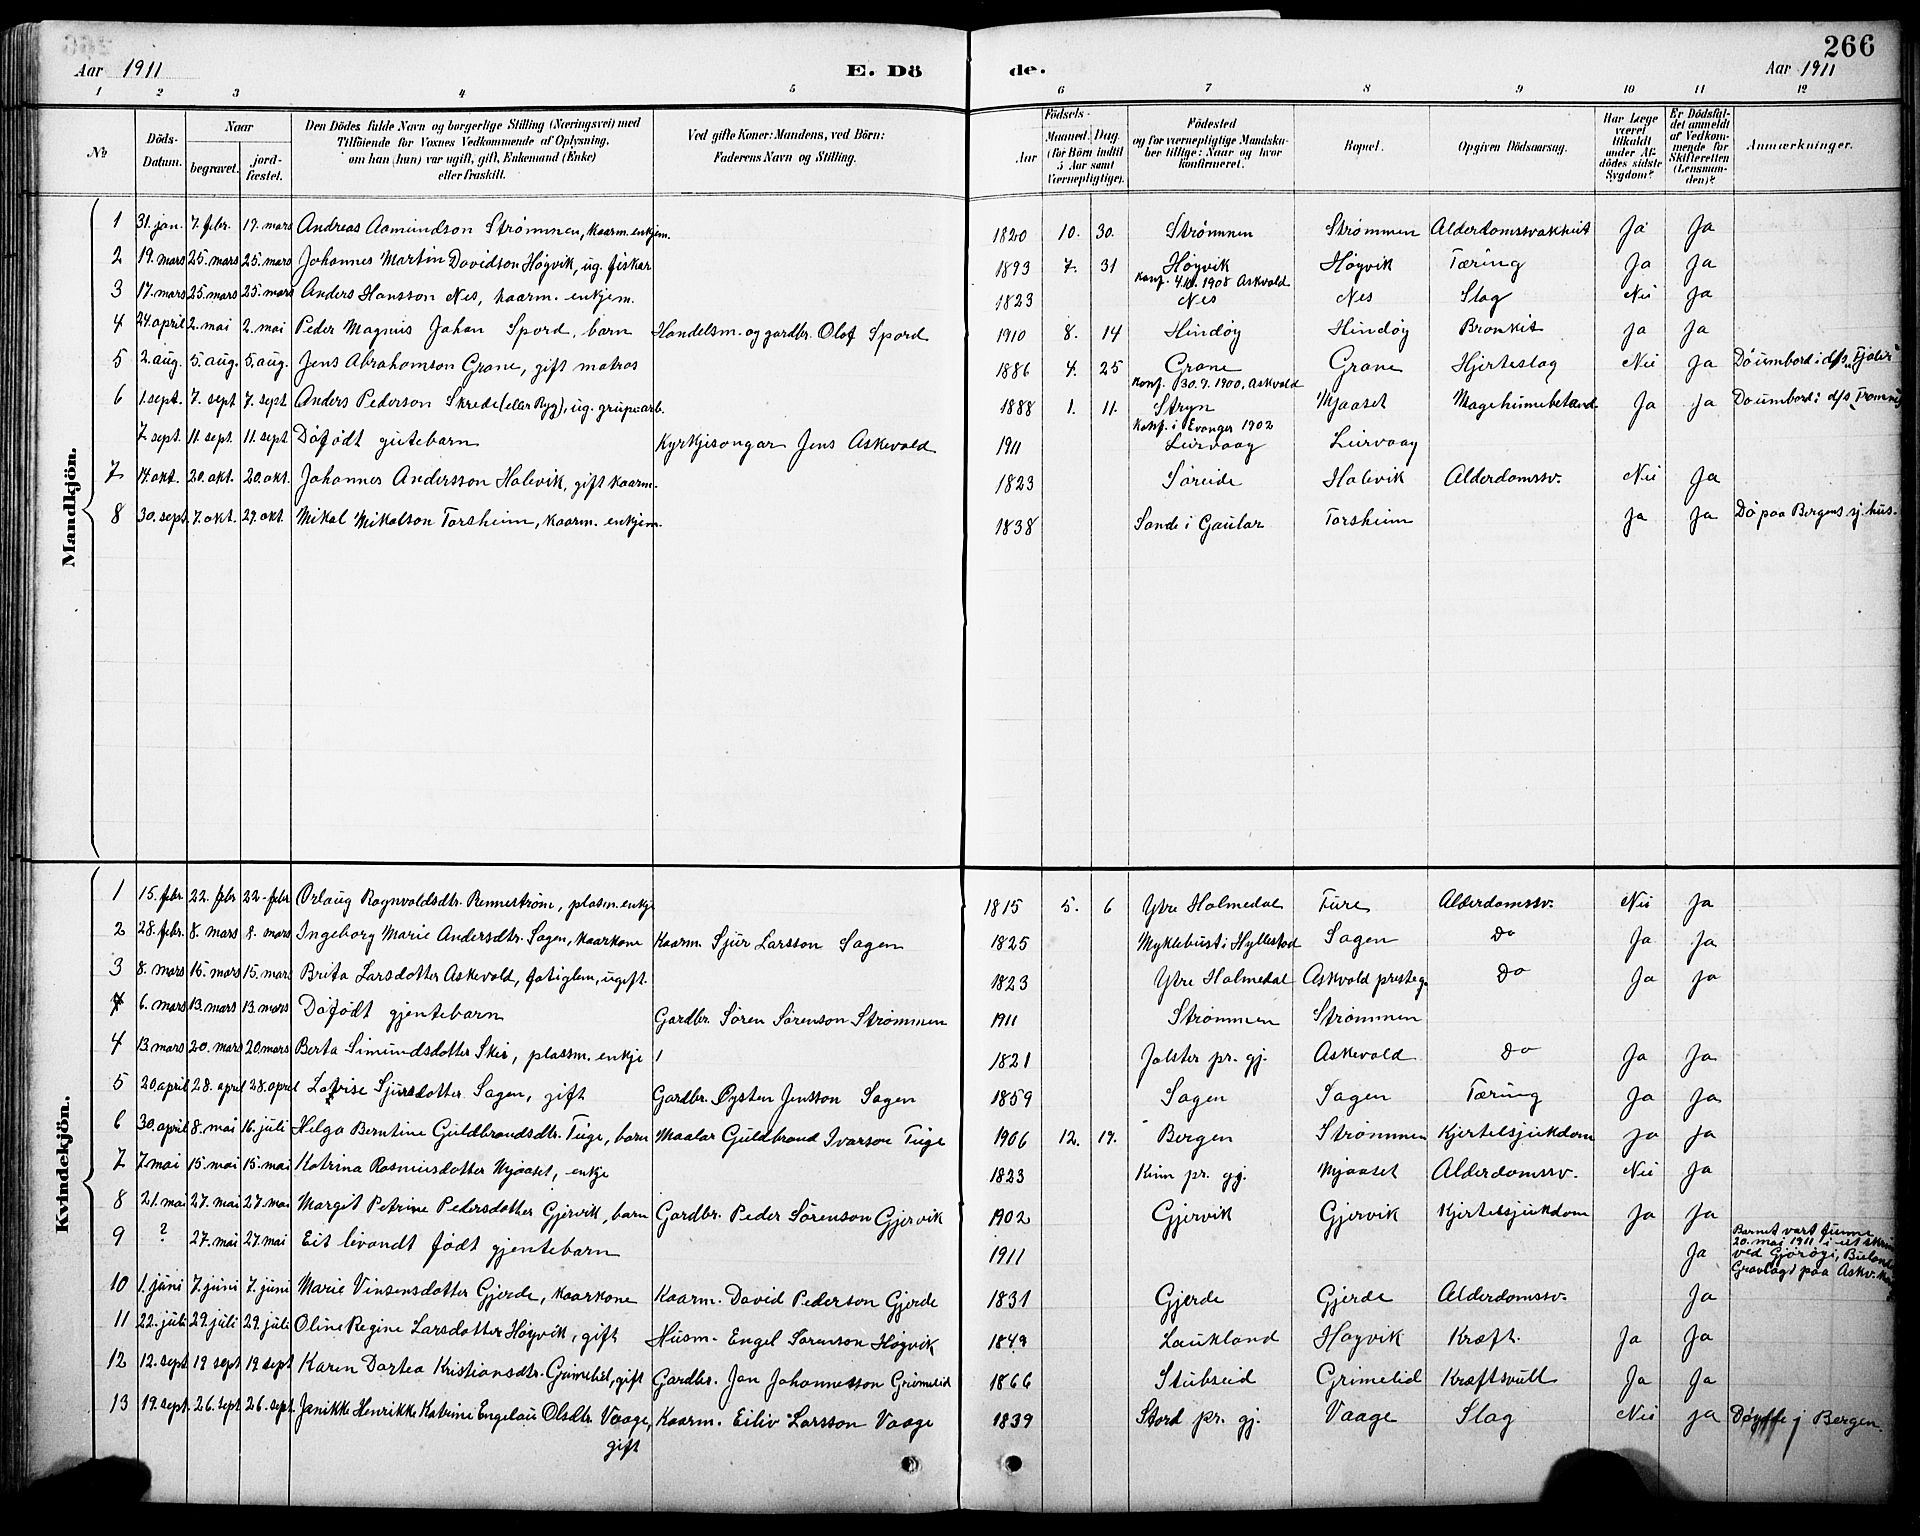 266
Aar 1911 E. Dö de. Aar 1911
1 2 3 4 5 6 7 8 9 10 11 12
No
Döds-Datum.
Naar
begravet.
jord-fæstet.
Den Dödes fulde Navn og borgerlige Stilling (Næringsvei) med
Tilföiende for Voxnes Vedkommende af Oplysning,
om han (hun) var ugift, gift, Enkemand (Enke)
eller fraskilt.
Ved gifte Koner: Mandens, ved Börn:
Faderens Navn og Stilling.
Födsels-
Aar
Maaned. Dag.
(for Börn indtil
5 Aar samt
Værnepligtige).
Födested
og for værnepligtige Mandsku-
ber tillige: Naar og hvor
konfirmeret.
Bopæl.
Opgiven Dödsaarsag.
Har Læge
været
tilkaldt
under Af-
dödes sidste
Sygdom?
Er Dödsfal-
det anmeldt
af Vedkom-
mende for
Skifteretten
(Lensman-
den)?
Anmærkninger.
Mandkjön.
1 31. jan. 7. febr. 17. mars Andreas Aamundson Strømmen, kaarm. enkjem. 1820 10. 30. Strømmen Strømmen Alderdomssvakheit Ja Ja
2 19. mars 25. mars 25. mars Johannes Martin Davidson Høgvik, ug. fiskar 1893 7. 31 Høgvik Høgvik Tæring Ja Ja
konf. 4.10. 1908 Askvold
3 17. mars 25. mars 25. mars Anders Hansson Nes, kaarm. enkjem. 1823 Nes Nes Slag Nei Ja
4 24. april 2. mai 2. mai Peder Magnus Johan Spord, barn Handelsm. og gardbr. Olof Spord 1910 8. 14 Hindøy Hindøy Bronkit Ja Ja
5 2. aug. 5. aug. 5. aug. Jens Abrahamson Grane, gift matros 1886 4. 25 Grane Grane Hjerteslag Nei Ja Dø umbord i d/s „Fjaler"
konf. 30. 9. 1900. Askvold
6 1. sept. 7. sept 7. sept. Anders Pederson Skrede (eller Ryg), ug. gruvearb. 1888 1. 11. Stryn Mjaaset Magehinnebetænd. Ja Ja Dø umbord i d/s
konf. i Evanger 1902
7. sept. 11. sept. 11. sept Døfødt gutebarn Kyrkjesongar Jens Askevold 1911 Leirvaag Leirvaag
7 14. okt. 20. okt. 20. okt. Johannes Andersson Halevik, gift kaarm. 1823 Søreide Halevik Alderdomssv. Nei Ja
8 30. sept. 7. okt. 29. okt. Mikal Mikalson Torsheim, kaarm. enkjem. 1838 Sande i Gaular Torsheim Ja Ja Dø paa Bergens sj. hus.
Kvindekjön.
1 15. febr. 22. febr 22. febr Orlaug Ragnvaldsdtr. Rennestrøm, plasm. enkje 1815 5. 6 Ytre Holmedal Fure Alderdomssv. Nei Ja
2 28. febr. 8. mars 8. mars Ingeborg Marie Andersdtr. Sagen, kaarkone Kaarm. Sjur Larsson Sagen 1825 Myklebust i Hyllestad Sagen Do Ja Ja
3 8. mars 15. mars 15. mars Brita Larsdotter Askevold, fatiglem, ugift. 1823 Ytre Holmedal Askvold presteg. Do Ja Ja
6. mars 13. mars 13. mars Døfødt gjentebarn Gardbr. Søren Sørenson Strømmen 1911 Strømmen Strømmen
4 13. mars 20. mars 20. mars Berta Simundsdotter Skei, plassm. enkje 1821 Jølster pr. gj. Askevold Do Ja Ja
5 20. april 28. april 28. april Lovise Sjursdotter Sagen, gift Gardbr. Øysten Jensson Sagen 1859 Sagen Sagen Tæring Ja Ja
6 30. april 8. mai 16. juli Helga Berntine Guldbrandsdtr. Tüge, barn Maalar Guldbrand Ivarson Tüge 1906 12. 19. Bergen Strømmen Kjertelsjukdom Ja Ja
7 7. mai 15. mai 15. mai Katrina Rasmusdotter Mjaaset, enkje 1823 Kinn pr. gj. Mjaaset Alderdomssv. Nei Ja
8 21. mai 27. mai 27. mai Margit Petrine Pedersdotter Gjervik, barn Gardbr. Peder Sørenson Gjervik 1902 Gjervik Gjervik Kjertelsjukdom Ja Ja
9 ? 27. mai 27. mai Eit levandt født gjentebarn 1911 Ja Barnet vart funne
20. mai 1911 i eit skrin
ved Gjørøyi,
Gravlagd paa Askv.
10 1. juni 7. juni 7. juni Marie Vinsensdotter Gjerde, kaarkone Kaarm. David Pederson Gjerde 1831 Gjerde Gjerde Alderdomssv. Ja
11 22. juli 29. juli 29. juli Oline Regine Larsdotter Høgvik, gift Husm. Engel Sørenson Høgvik 1849 Laukland Høgvik Kræft. Ja Ja
12 12. sept 19 sept 19 sept Karen Dortea Kristiansdtr. Grimelid, gift Gardbr. Jon Johannesson Grimelid 1866 Stubseid Grimelid Kræftsvull Ja Ja
13 19. sept. 26. sept 26. sept. Janikke Henrikke Katrine Engelau Olsdtr. Vaage, Kaarm. Eiliv Larsson Vaage 1839 Stord pr. gj. Vaage Slag Nei Ja Døyffe j Bergen.
gift